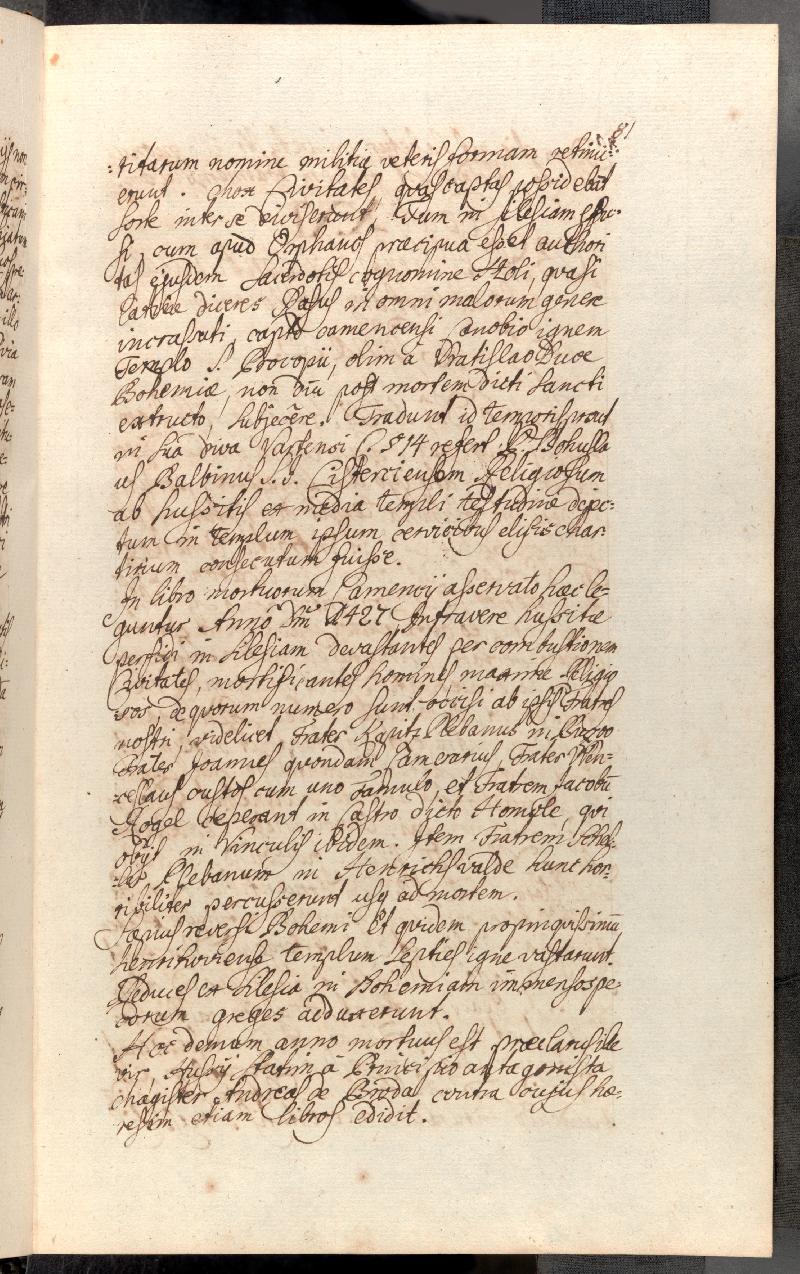 81
:ritarum nomine militiæ veteris formam retinu:
erunt. Mox Civitates, quas captas possidebāt
sorte inter se diviserunt. Tum in Silesiam effu:
si, cum apud Orphanos præcipua esset authori
tas ejusdem Sacerdotis cognomine Holi, quasi
Calvere diceres Rasus in omni malorum genere
incrassati, capto Camencensi Cænobio ignem
Templo S. Procopii, olim a Vratislao Duce
Bohemiæ, non diu post mortem dicti Sancti
extructo, subjecêre. Tradunt id temporis prout
in sua Diva Vartensi C. §14 refert P. Bohusla
us Balbinus S.J. Cisterciensem Religiosum
ab hussitis ex media templi testudine dejec:
tum in templum ipsum cervicibus elisis Mar:
tirium consecutum fuisse.
In libro mortuorum Camencij asservato hæc le:
guntur Anno Dn̄i 1427 Intravere hussitæ
perfidi in Silesiam devastantes per combustionem
Civitates, mortificantes homines maxime Religio
sos, de quorum numero sunt occisi ab ipsis Fratres
nostri, videlicet, Frater Kapitz Plebanus in
Frater Joannes quondam Camerarius, Frater Wen:
ceslaus custos cum uno Famulo, et Fratrem Jacobū
Rogel ceperant in Castro dicto Homole, qui
obijt in Vinculis ibidem. Item Fratrem
Plebanum in Henrichswalde hunc hor:
ribiliter percusserunt usq ad mortem.
Sæpius reversi Bohemi et quidem propinquissimū
henrihoviense templum septies igne vastarunt.
Reduces ex Silesia in Bohemiam immensos pe:
corum greges adduxerunt.
Hoc demum anno mortuus est præclarus ille
vir Hussij statim à Principio antagonista
Magister Andreas de Broda contra cujus hæ:
resim etiam libros edidit.